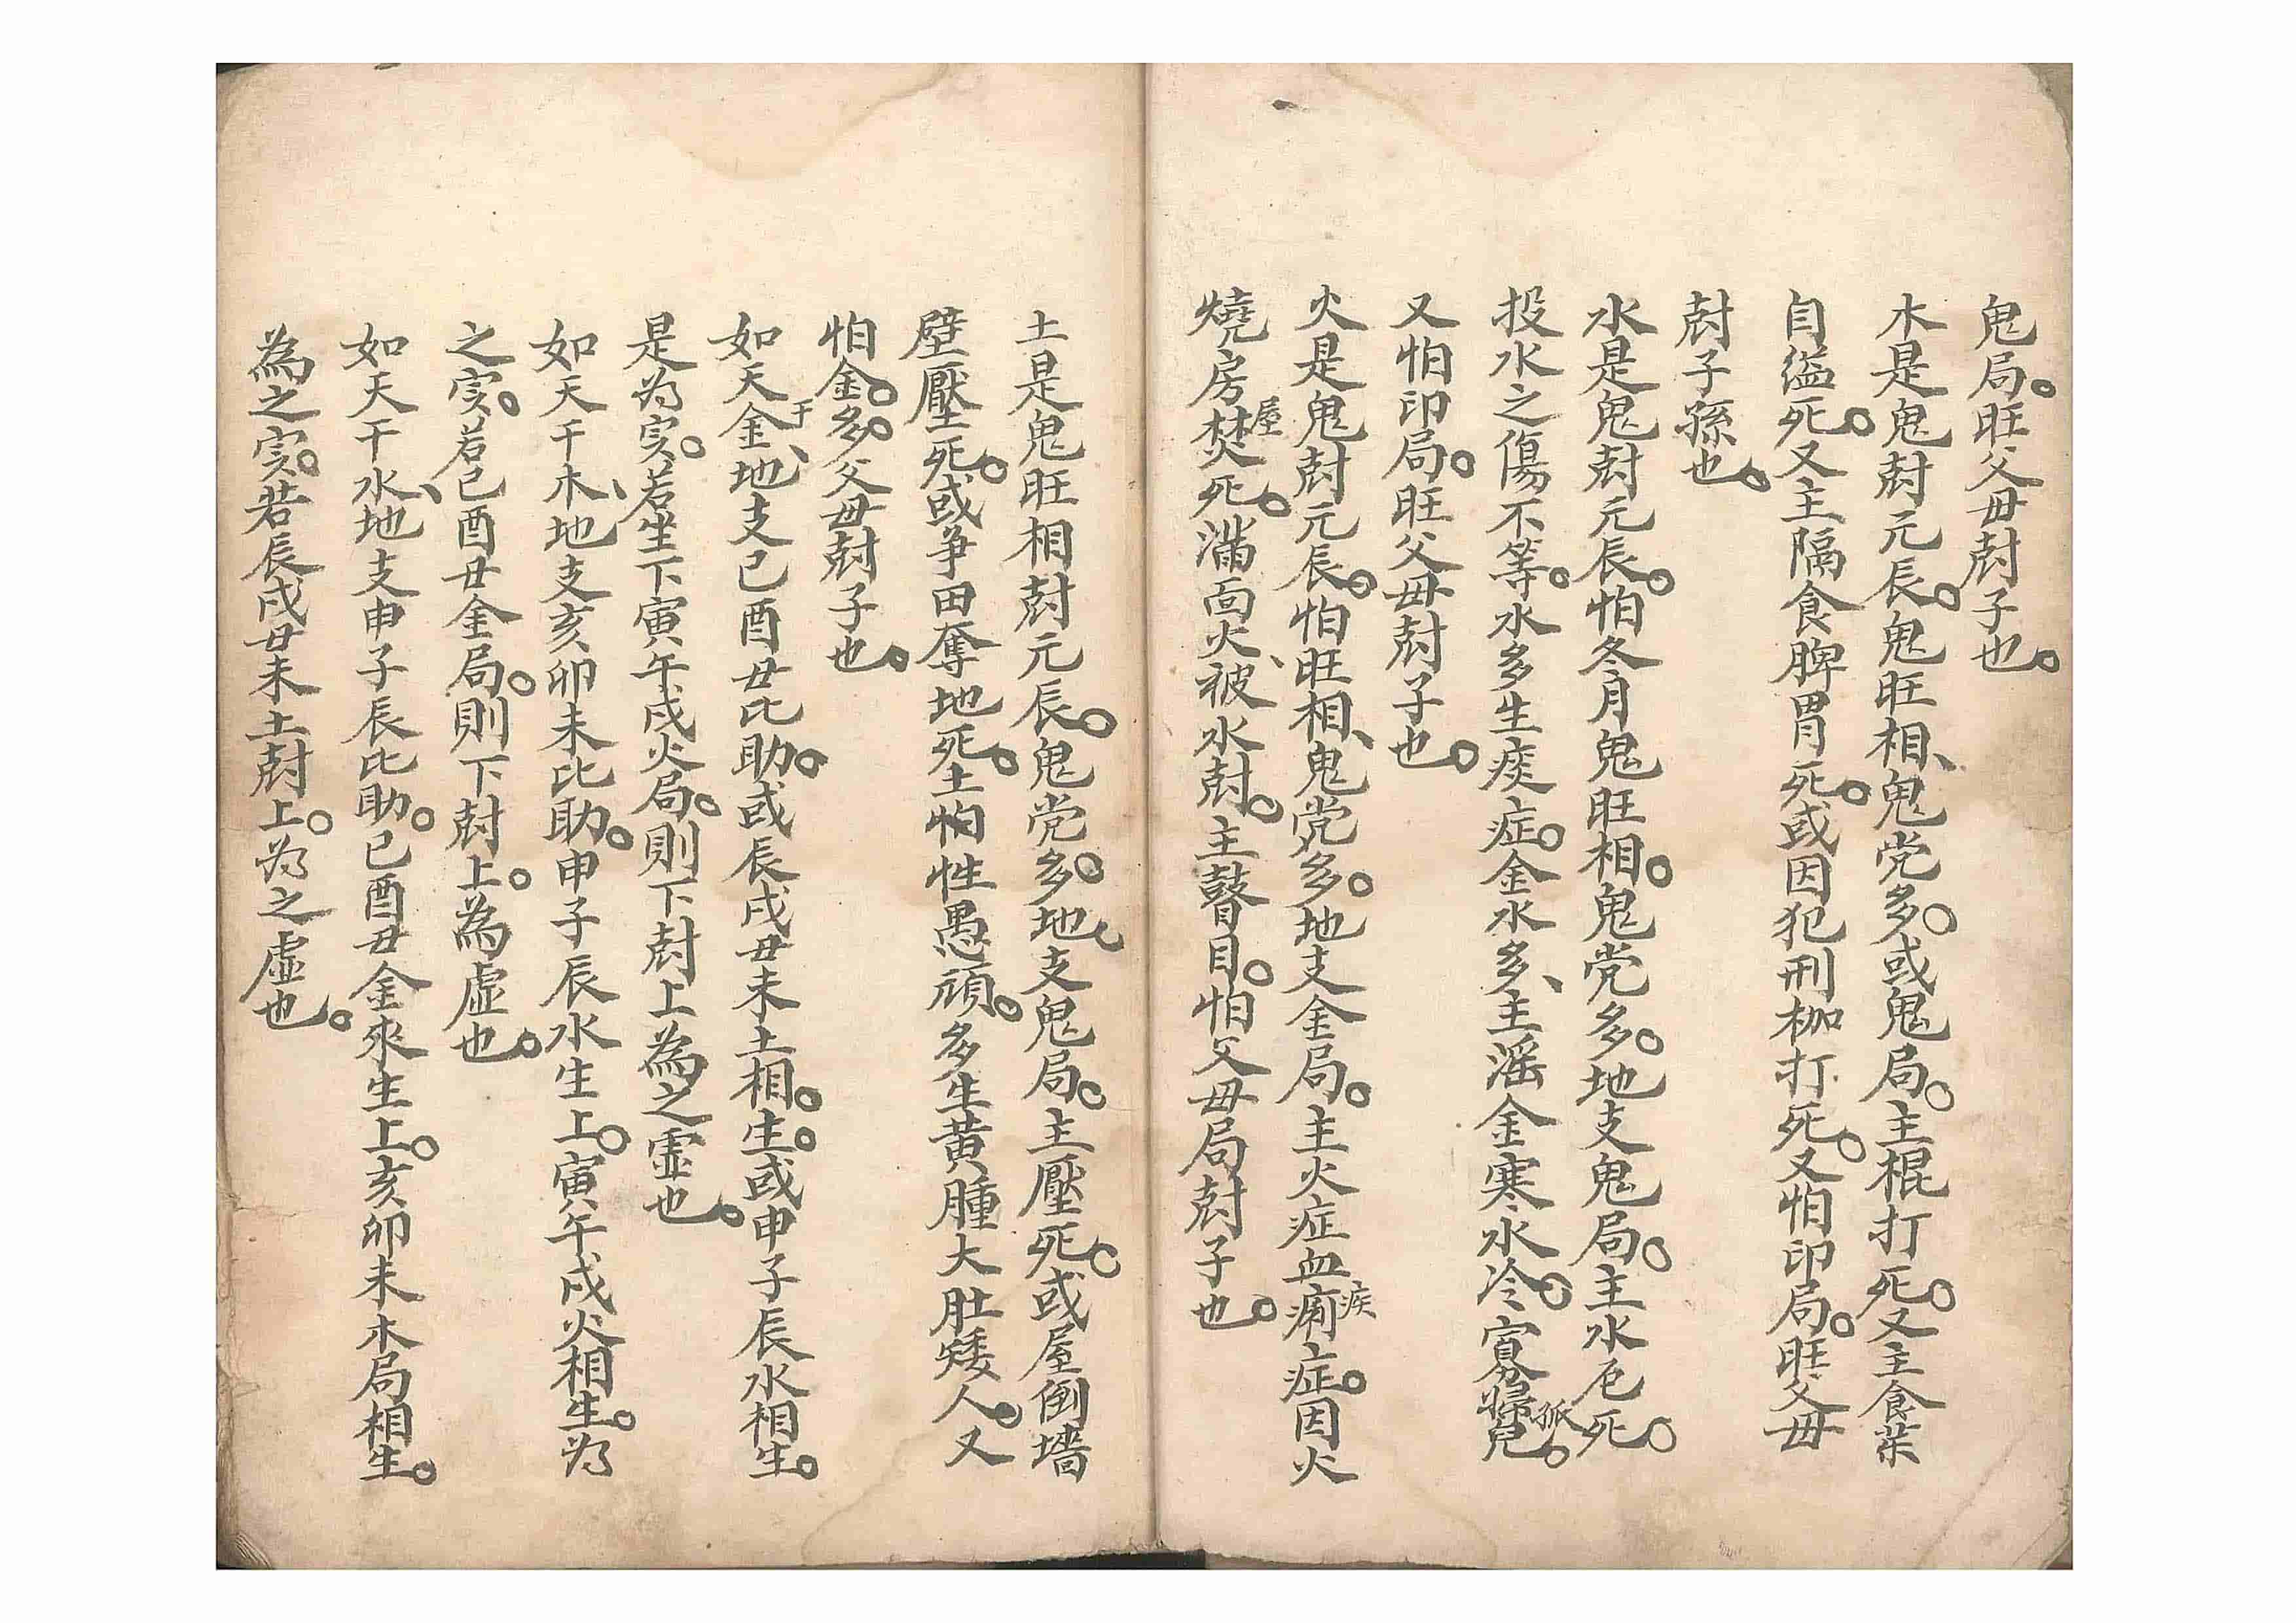 鬼局。旺父毋尅子也。
木是鬼尅元辰。鬼旺相、鬼党多。或鬼局。主棍打死。又主食茶
自缢死。又主隔食脾胃死。或因犯刑枷打死。又怕印局。旺父毋
尅子孫也。
水是鬼尅元辰。怕冬月鬼旺相。鬼党多。地支鬼局。主水厄死。
投水之傷不等。水多生痰症。金水多、主滛金寒水冷。寡婦孤兒。
又怕印局。旺父毋尅子也。
火是鬼尅元辰。怕旺相、鬼党多。地支金局。主火症血痢疾症。因火
燒房屋焚死。滿面火、被水尅。主瞽目。怕父毋局尅子也。
土是鬼旺相尅元辰。鬼党多。地、支鬼局。主壓死。或屋倒墻
壁壓死。或争田奪地死。土怕性愚頑。多生黄腫大肚矮人。又
怕金。多。父毋尅子也。
如天干金、地支已酉丑比助。或辰戌丑未土相。生。或申子辰水相生。
是为实。若坐下寅午戌火局。則下尅上為之虚也。
如天干木、地支亥卯未比助。申子辰水生上。寅午戌火相生。为
之实。若已酉丑金局。則下尅上。為虚也。
如天干水、地支申子辰比助。已酉丑金來生上。亥卯未木局相生。
為之实。若辰戌丑未土尅上。为之虚也。